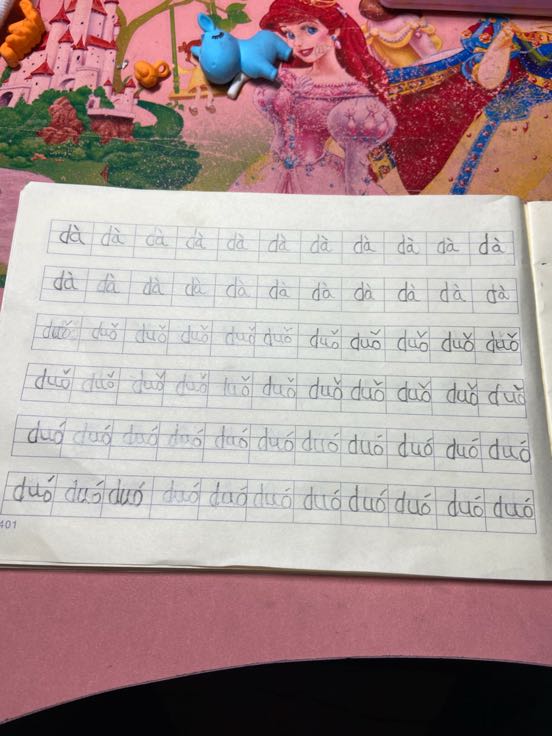 dà dà dà dà dà dà dà dà dà dà dà
dà dà dà dà dà dà dà dà dà dà dà
duǒ duǒ duǒ duǒ duǒ duǒ duǒ duǒ duǒ duǒ duǒ
duǒ duǒ duǒ duǒ duǒ duǒ duǒ duǒ duǒ duǒ duǒ
duó duó duó duó duó duó duó duó duó duó duó
duó duó duó duó duó duó duó duó duó duó duó
401